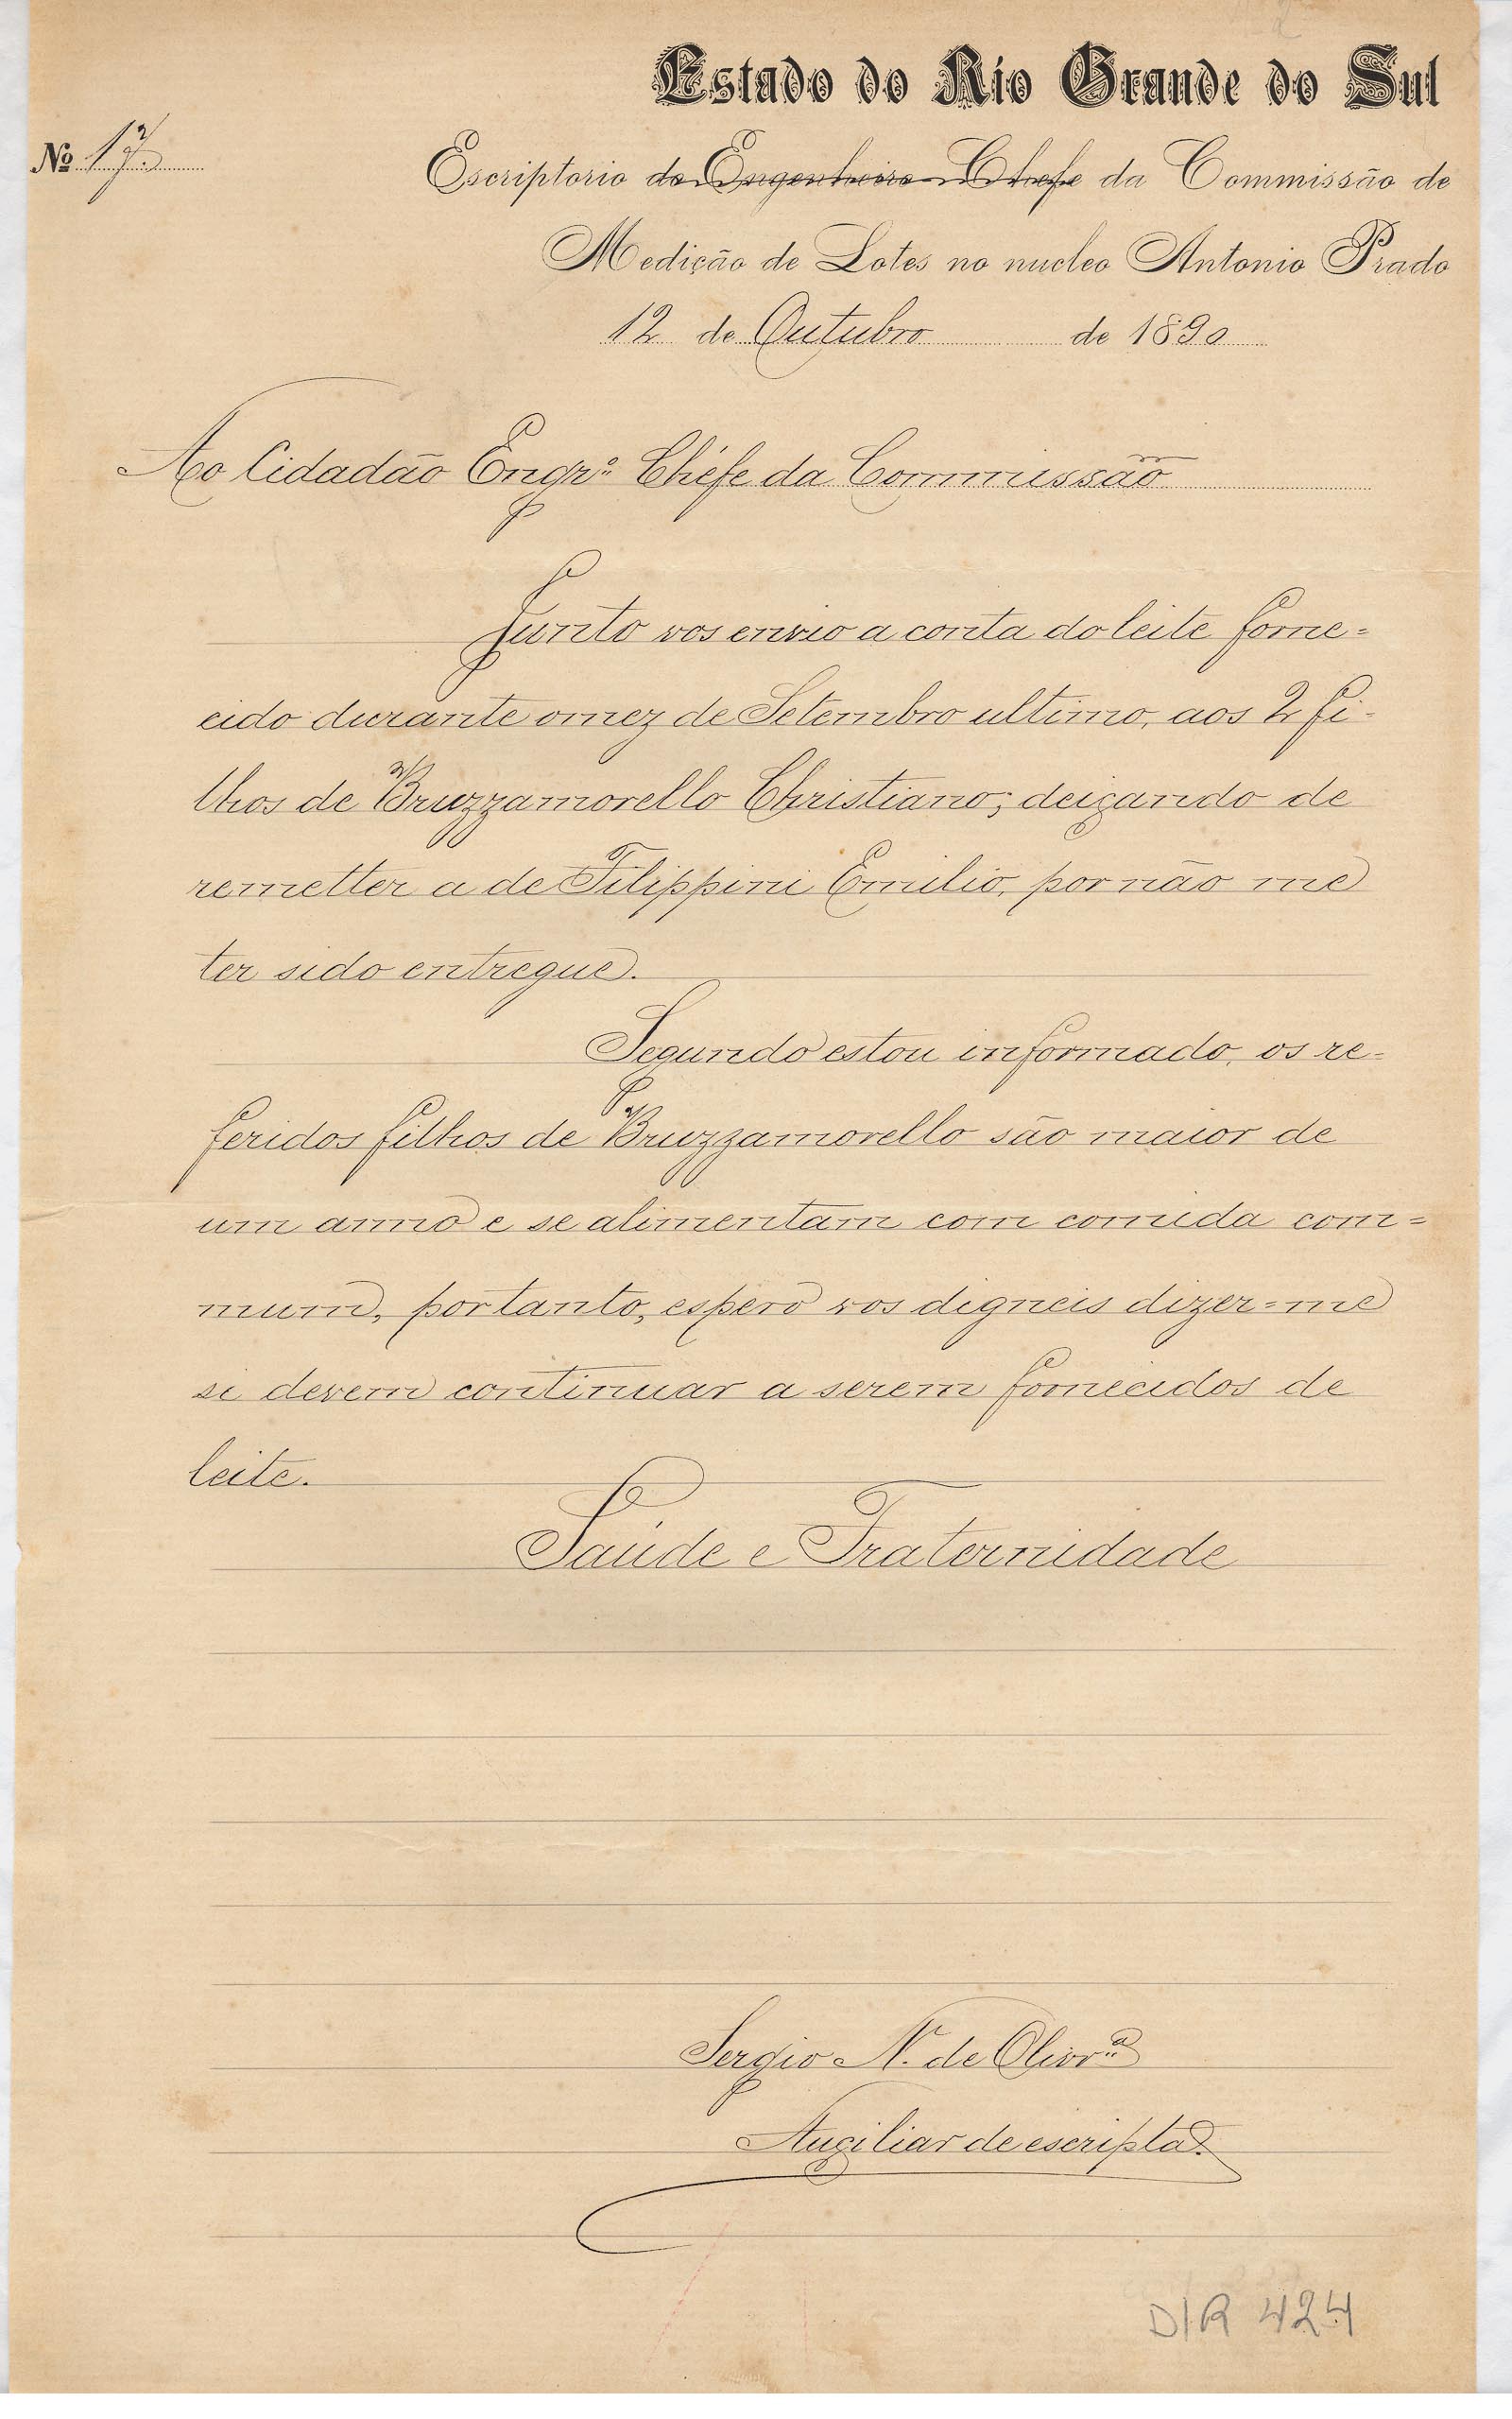 Estado do Rio Grande do Sul
Nº 17.
Escriptorio do Engenheiro Chefe da Commissão de
Medição de Lotes no nucleo Antonio Prado
12 de Outubro de 1890
Ao Cidadão Engrº Chéfe da Commissão
Junto vos envio a conta do leite forne=
cido durante o mez de Setembro ultimo, aos 2 fi-
lhos de Bruzzamorello Christiano; deixando de
remetter a de Filippini Emilio, por não me
ter sido entregue.
Segundo estou informado, os re=
feridos filhos de Bruzzamorello são maior de
um anno e se alimentam com comida com=
mum, portanto, espero vos digneis dizer=me
si devem continuar a serem fornecidos de
leite.
Saúde e Fraternidade
Sergio N. de Olivrª
Auxiliar de escripta.
DIR 424